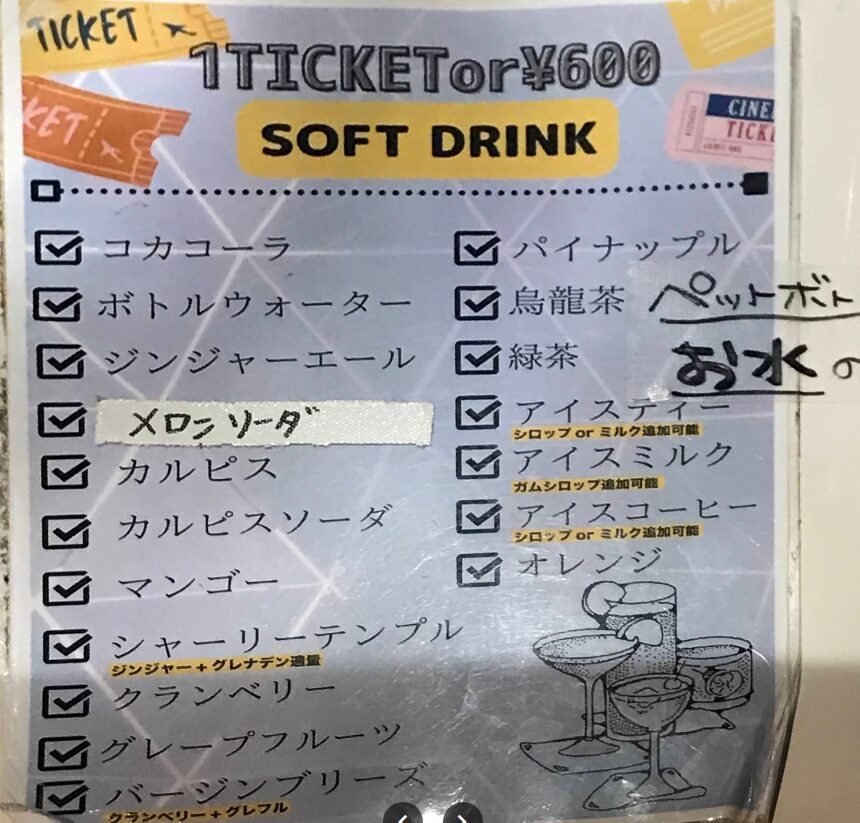 TICKET
KET
1TICKETor¥600
SOFT DRINK
CINE
TICK
コカコーラ
ボトルウォーター
ジンジャーエール
メロンソーダ
カルピス
カルピスソーダ
マンゴー
シャーリーテンプル
ジンジャー+グレナデン適量
クランベリー
グレープフルーツ
バージンブリーズ
クランベリー+グレフル
パイナップル
烏龍茶
緑茶
アイスティー
シロップ or ミルク追加可能
アイスミルク
ガムシロップ追加可能
アイスコーヒー
シロップ or ミルク追加可能
オレンジ
ペットボト
お水の